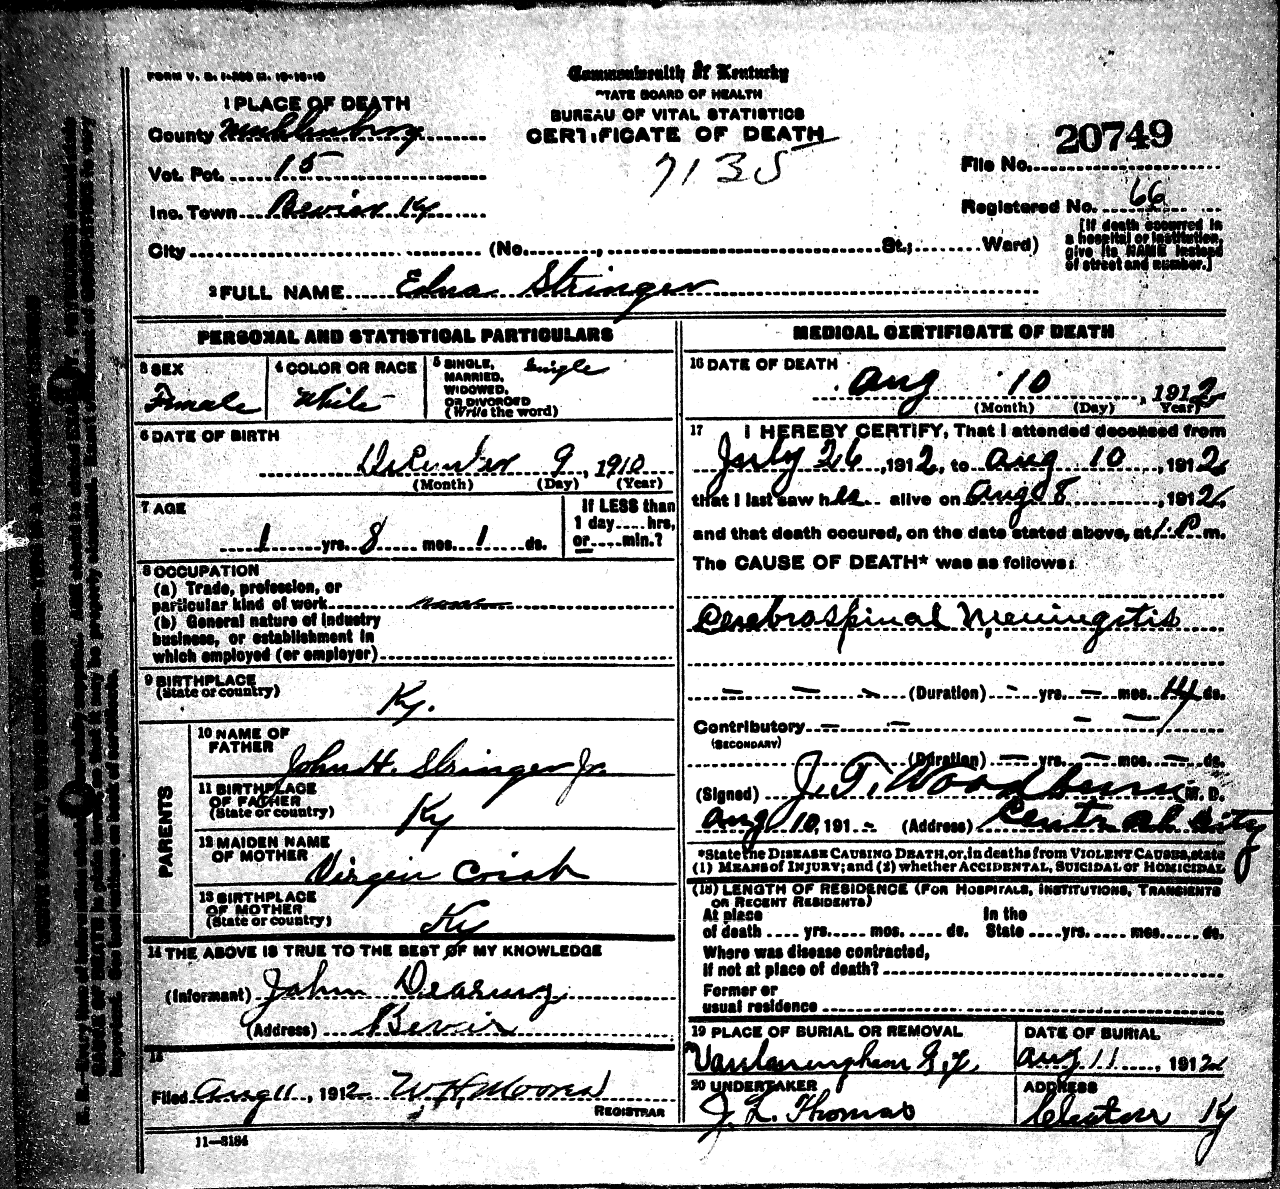 FORM V. S. 1-
Commonwealth of Kentucky
STATE BOARD OF HEALTH
BUREAU OF VITAL STATISTICS
CERTIFICATE OF DEATH
7135
1 PLACE OF DEATH
County Muhlenberg
Vot. Pct. 15
Inc. Town Bevier Ky
City (No. , St.; Ward)
20749
File No.
Registered No. 66
[If death occurred in
a hospital or institution,
give its NAME instead
of street and number.]
2 FULL NAME Edna Stringer
PERSONAL AND STATISTICAL PARTICULARS
3 SEX
Female
4 COLOR OR RACE
White
5 SINGLE,
MARRIED,
WIDOWED,
OR DIVORCED
(Write the word)
Single
6 DATE OF BIRTH
December 9, 1910
(Month) (Day) (Year)
7 AGE
1 yrs. 8 mos. 1 ds.
If LESS than
1 day.... hrs,
or.....min.?
8 OCCUPATION
(a) Trade, profession, or
particular kind of work none
(b) General nature of industry
business, or establishment in
which employed (or employer)
9 BIRTHPLACE
(State or country)
Ky.
PARENTS
10 NAME OF
FATHER
John H. Stringer Jr.
11 BIRTHPLACE
OF FATHER
(State or country)
Ky
12 MAIDEN NAME
OF MOTHER
Virgin
13 BIRTHPLACE
OF MOTHER
(State or country)
Ky
14 THE ABOVE IS TRUE TO THE BEST OF MY KNOWLEDGE
(Informant) John Dearing
(Address) Bevier
15
Filed Aug 11, 1912 W. H. Moored
REGISTRAR
11—3184
MEDICAL CERTIFICATE OF DEATH
16 DATE OF DEATH
Aug 10, 1912
(Month) (Day) Year)
17 I HEREBY CERTIFY, That I attended deceased from
July 26, 1912, to Aug 10, 1912
that I last saw her alive on Aug 8, 1912
and that death occured, on the date stated above, at 1 P m.
The CAUSE OF DEATH* was as follows:
Cerebrospinal Meningitis
— — — (Duration) — yrs. — mos. 14 ds.
Contributory — — — —
(SECONDARY)
(Duration) — yrs. — mos. — ds.
(Signed) J. T. Woodburn M. D.
Aug 10, 191 – (Address) Central City
*State the DISEASE CAUSING DEATH, or, in deaths from VIOLENT CAUSES, state
(1) MEANS of INJURY; and (2) whether ACCIDENTAL, SUICIDAL or HOMICIDAL
(18) LENGTH OF RESIDENCE (FOR HOSPITALS, INSTITUTIONS, TRANSIENTS
OR RECENT RESIDENTS)
At place In the
of death ..... yrs..... mos..... ds. State ....yrs..... mos..... ds.
Where was disease contracted,
if not at place of death?
Former or
usual residence
19 PLACE OF BURIAL OR REMOVAL
Vanlaningham G. Y.
DATE OF BURIAL
Aug 11, 1912
20 UNDERTAKER
J. L. Thomas
ADDRESS
Ky